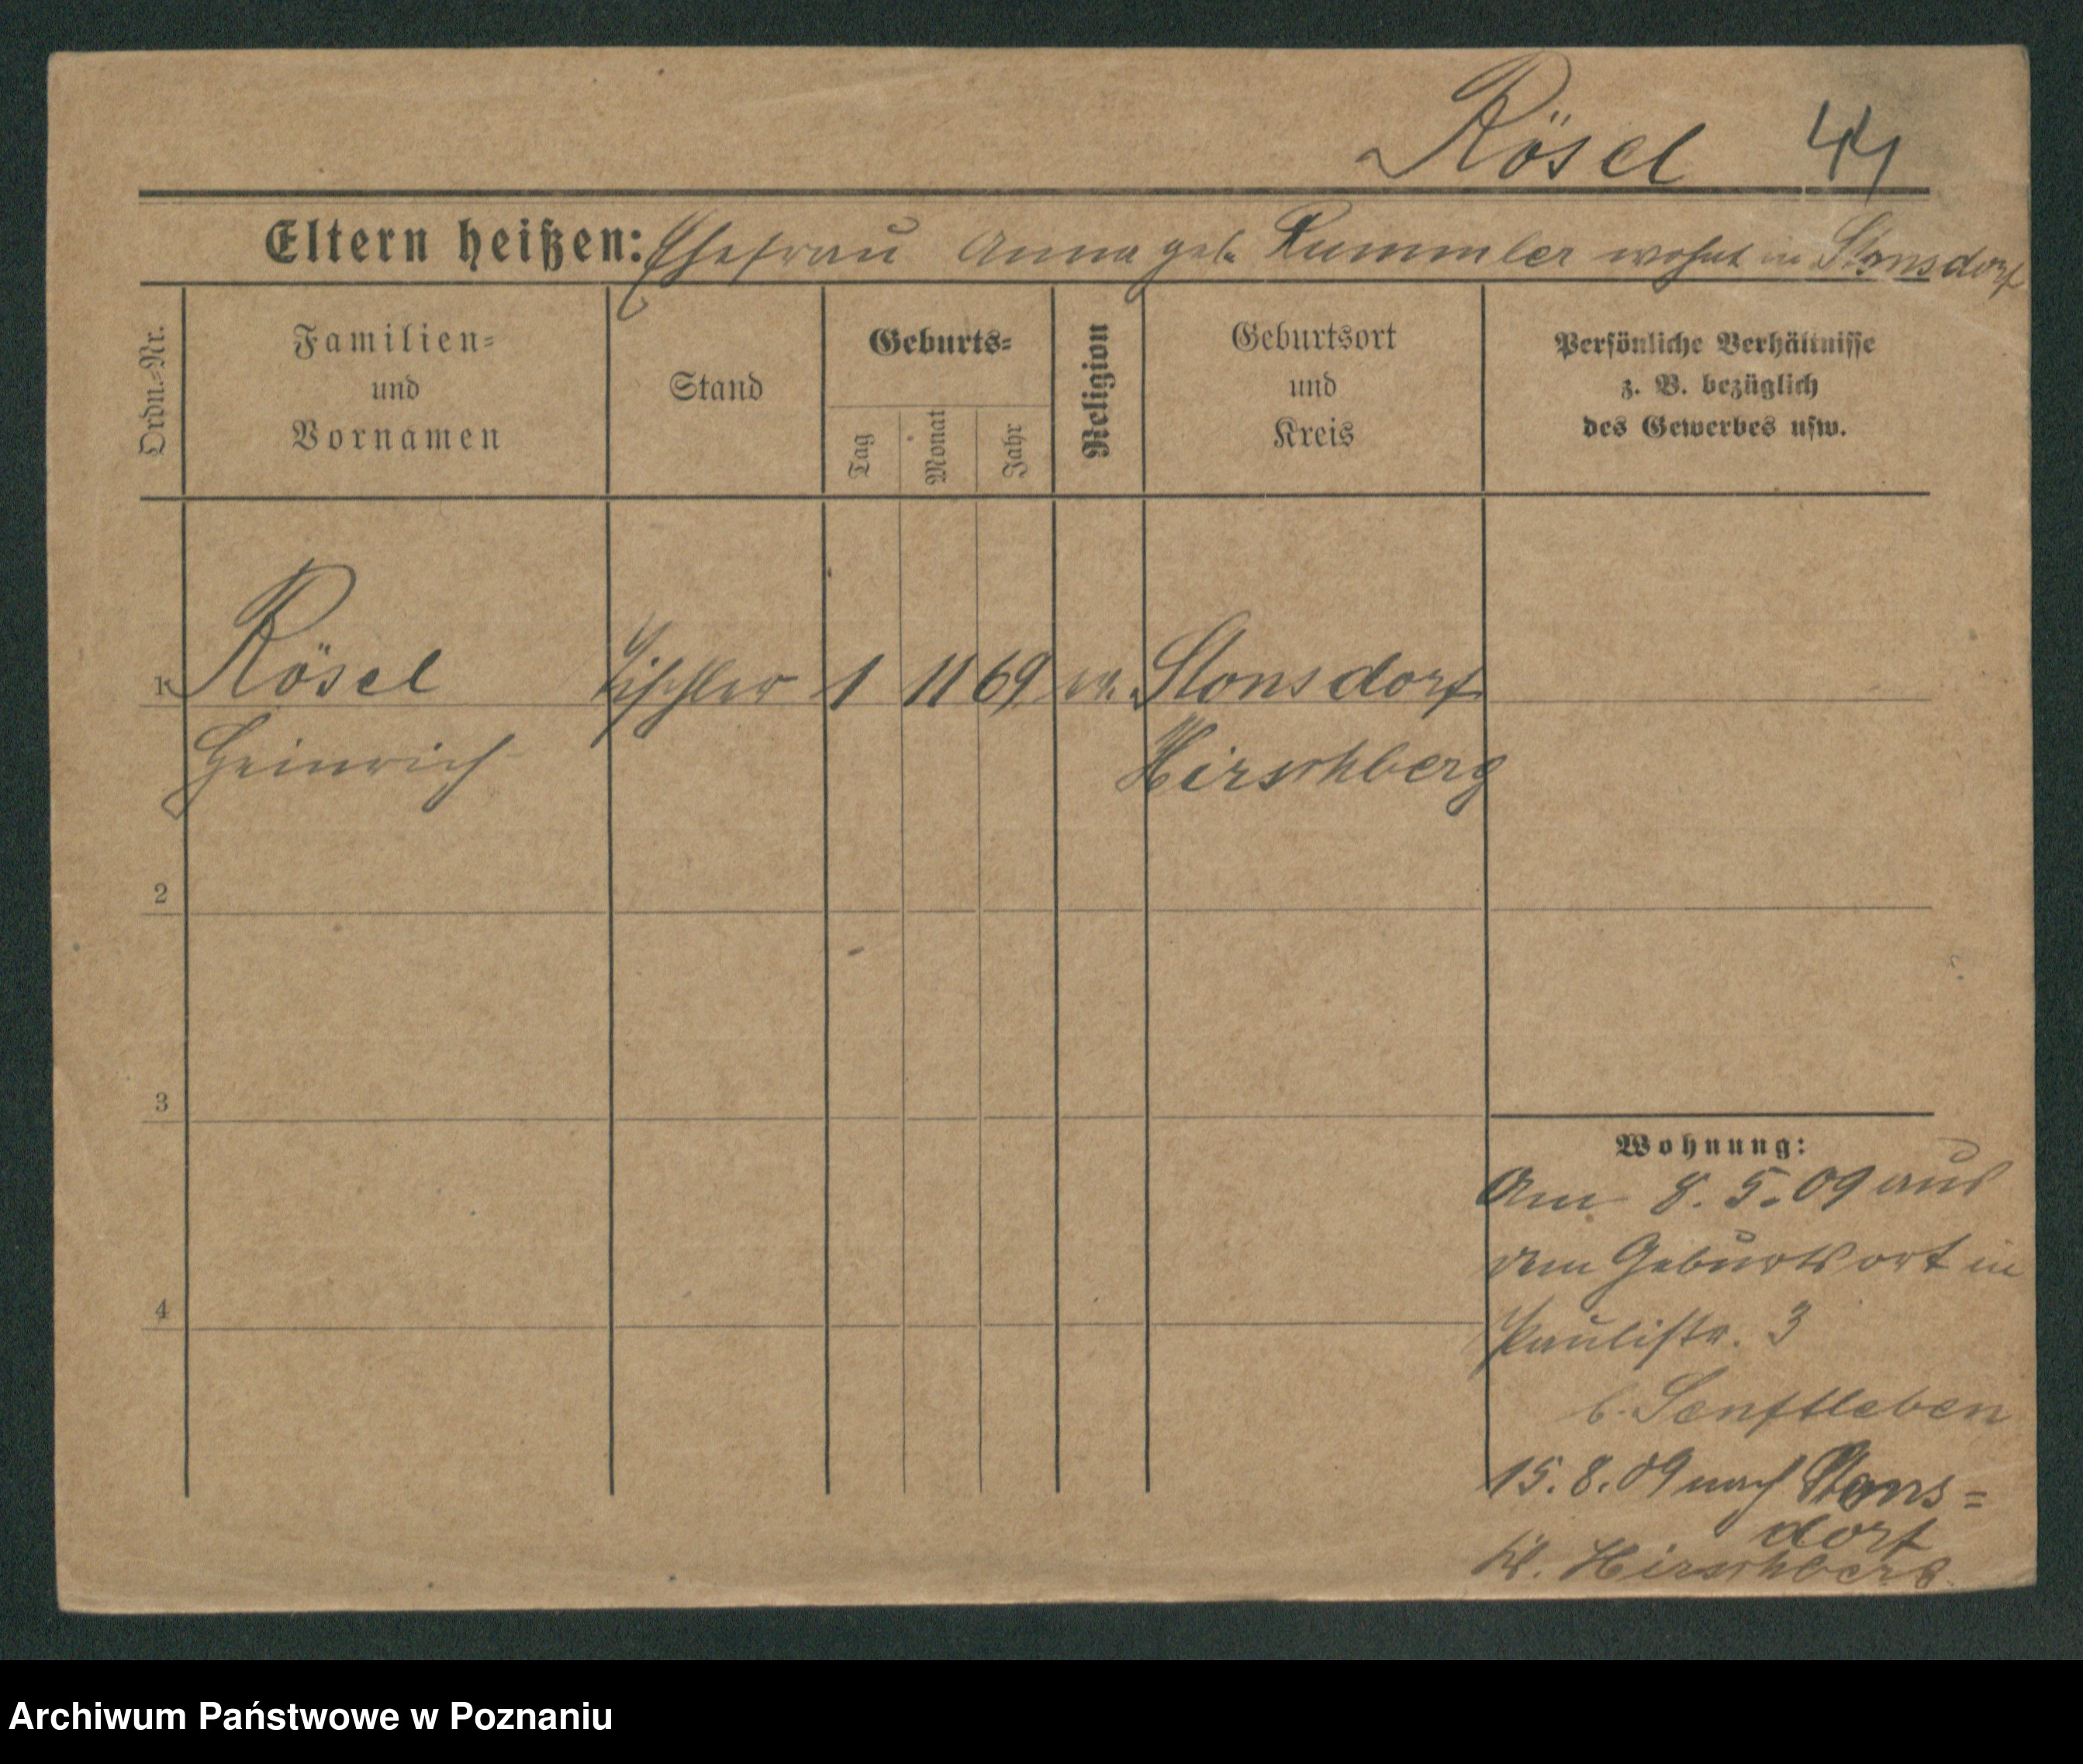 Rösel 44
Eltern heißen: Ehefrau Anna geb. Rummler wohnt in Stonsdorf
Ordn.-Nr.
Familien-
und
Vornamen
Stand
Geburts-
Tag
Monat
Jahr
Religion
Geburtsort
und
Kreis
Persönliche Verhältnisse
z. B. bezüglich
des Gewerbes usw.
1 Rösel Tischler 1 11 69 ev. Stonsdorf
Heinrich Hirschberg
2
3
4
Wohnung:
Am 8.5.09 aus
dem Geburtsort in
Paulistr. 3
b. Senftleben
15.8.09 nach Stons=
dorf
Kr. Hirschberg
Archiwum Państwowe w Poznaniu